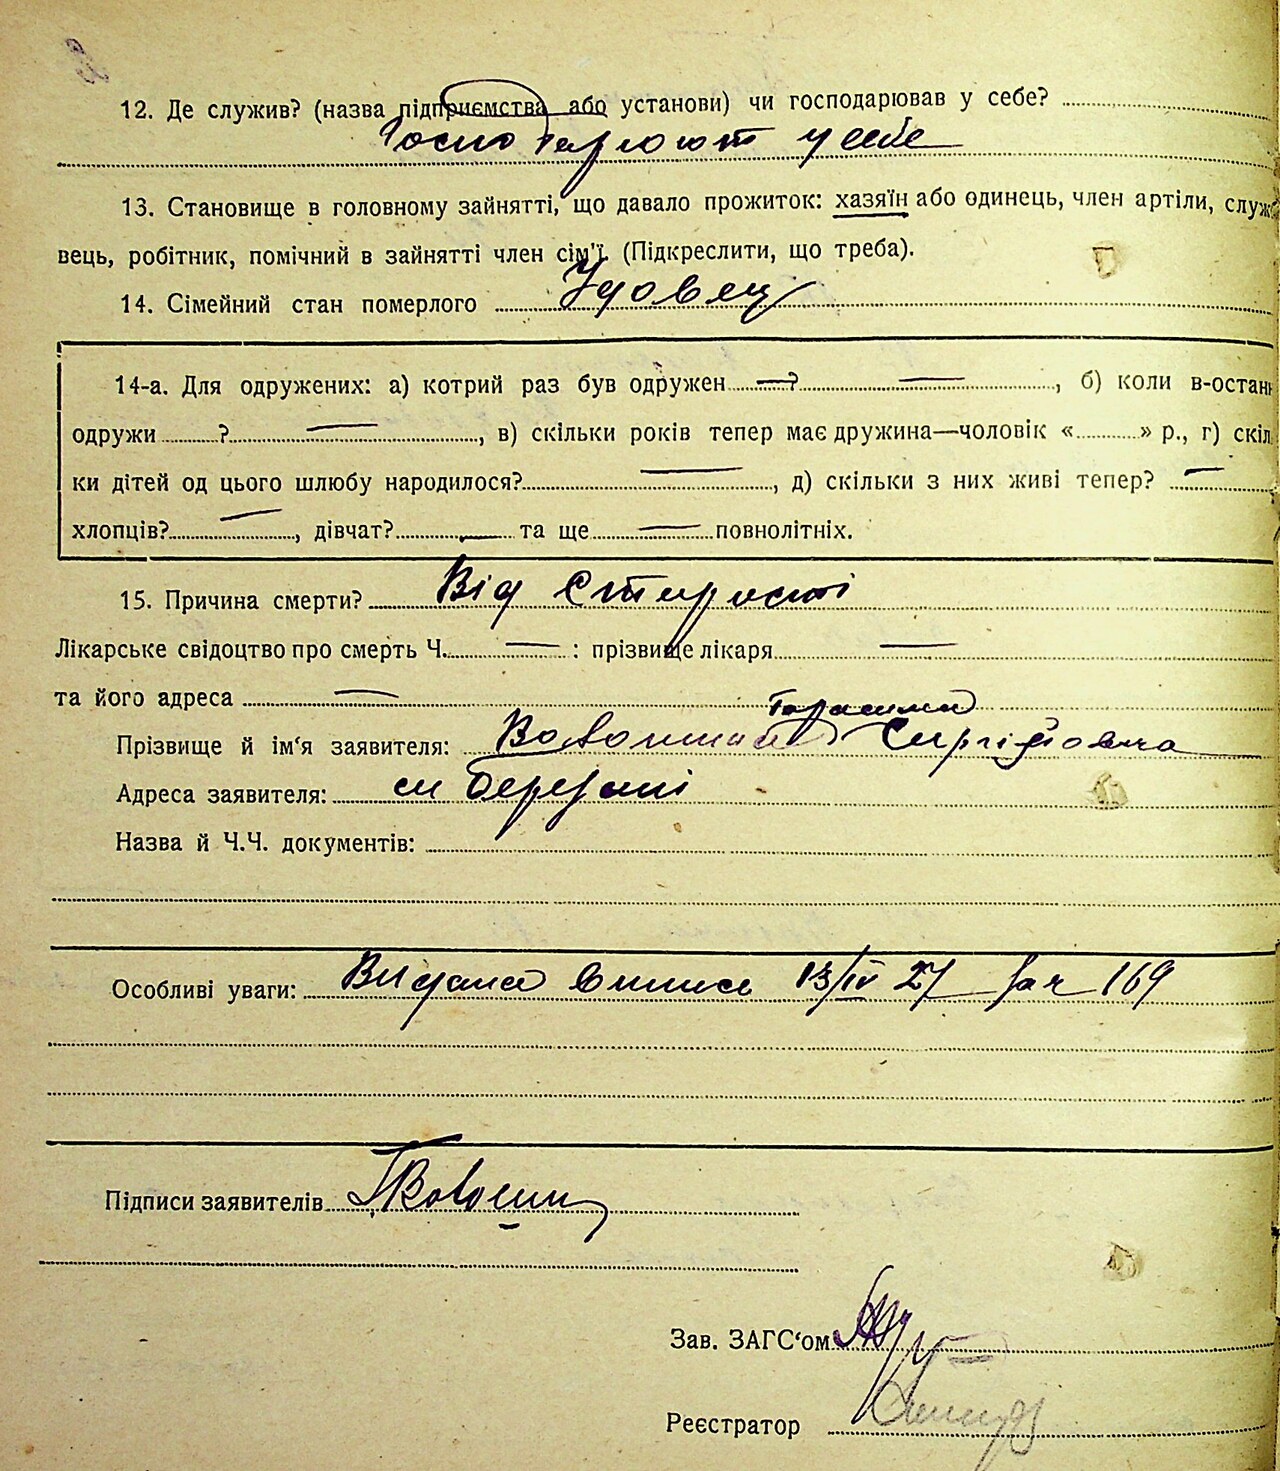 12. Де служив? (назва підприємства або установи) чи господарював у себе?
Господарюют у себе
13. Становище в головному зайнятті, що давало прожиток: хазяїн або одинець, член артіли, служ
вець, робітник, помічний в зайнятті член сім'ї. (Підкреслити, що треба).
14. Сімейний стан померлого Удовец
14-а. Для одружених: а) котрий раз був одружен — ? —, б) коли в-остан
одружи ? —, в) скільки років тепер має дружина—чоловік « » р., г) скіл
ки дітей од цього шлюбу народилося? —, д) скільки з них живі тепер? —
хлопців? —, дівчат? — та ще — повнолітніх.
15. Причина смерти? Від старості
Лікарське свідоцтво про смерть Ч. — : прізвище лікаря —
та його адреса —
Прізвище й ім'я заявителя: Волошин
Адреса заявителя: см Березані
Назва й Ч.Ч. документів:
Особливі уваги: Видана випись 13/IV 27 за ч 169
Підписи заявителів Волошин
Зав. ЗАГС'ом
Реєстратор